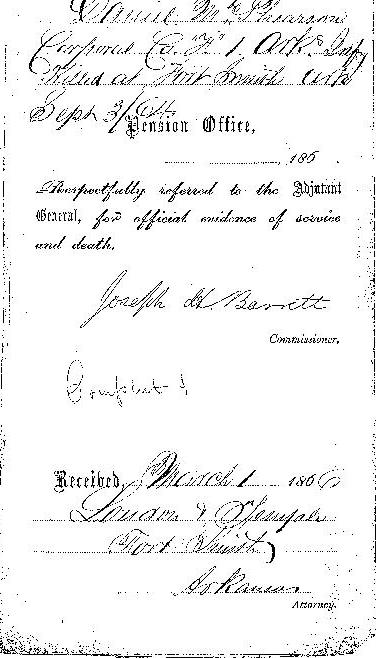 Daniel McPhearson
Corporal Co "F" 1 Arks Infy
Killed at Fort Smith Ark
Sept 3/64
Pension Office,
186
Respectfully referred to the Adjutant
General, for official evidence of service
and death.
Joseph H. Barrett
Commissioner.
Received, March 1 1866
& Temple
Fort Smith
Arkansas
Attorney.